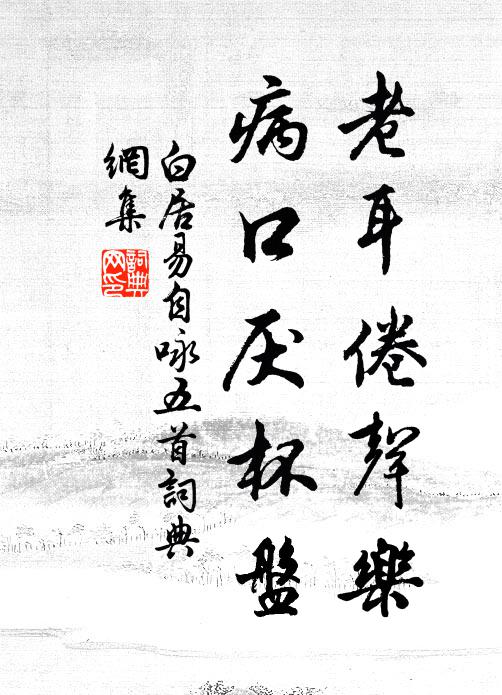 老耳倦聲樂
病口厌杯盤
白居易自咏五首詞典
網集
詞典
网印